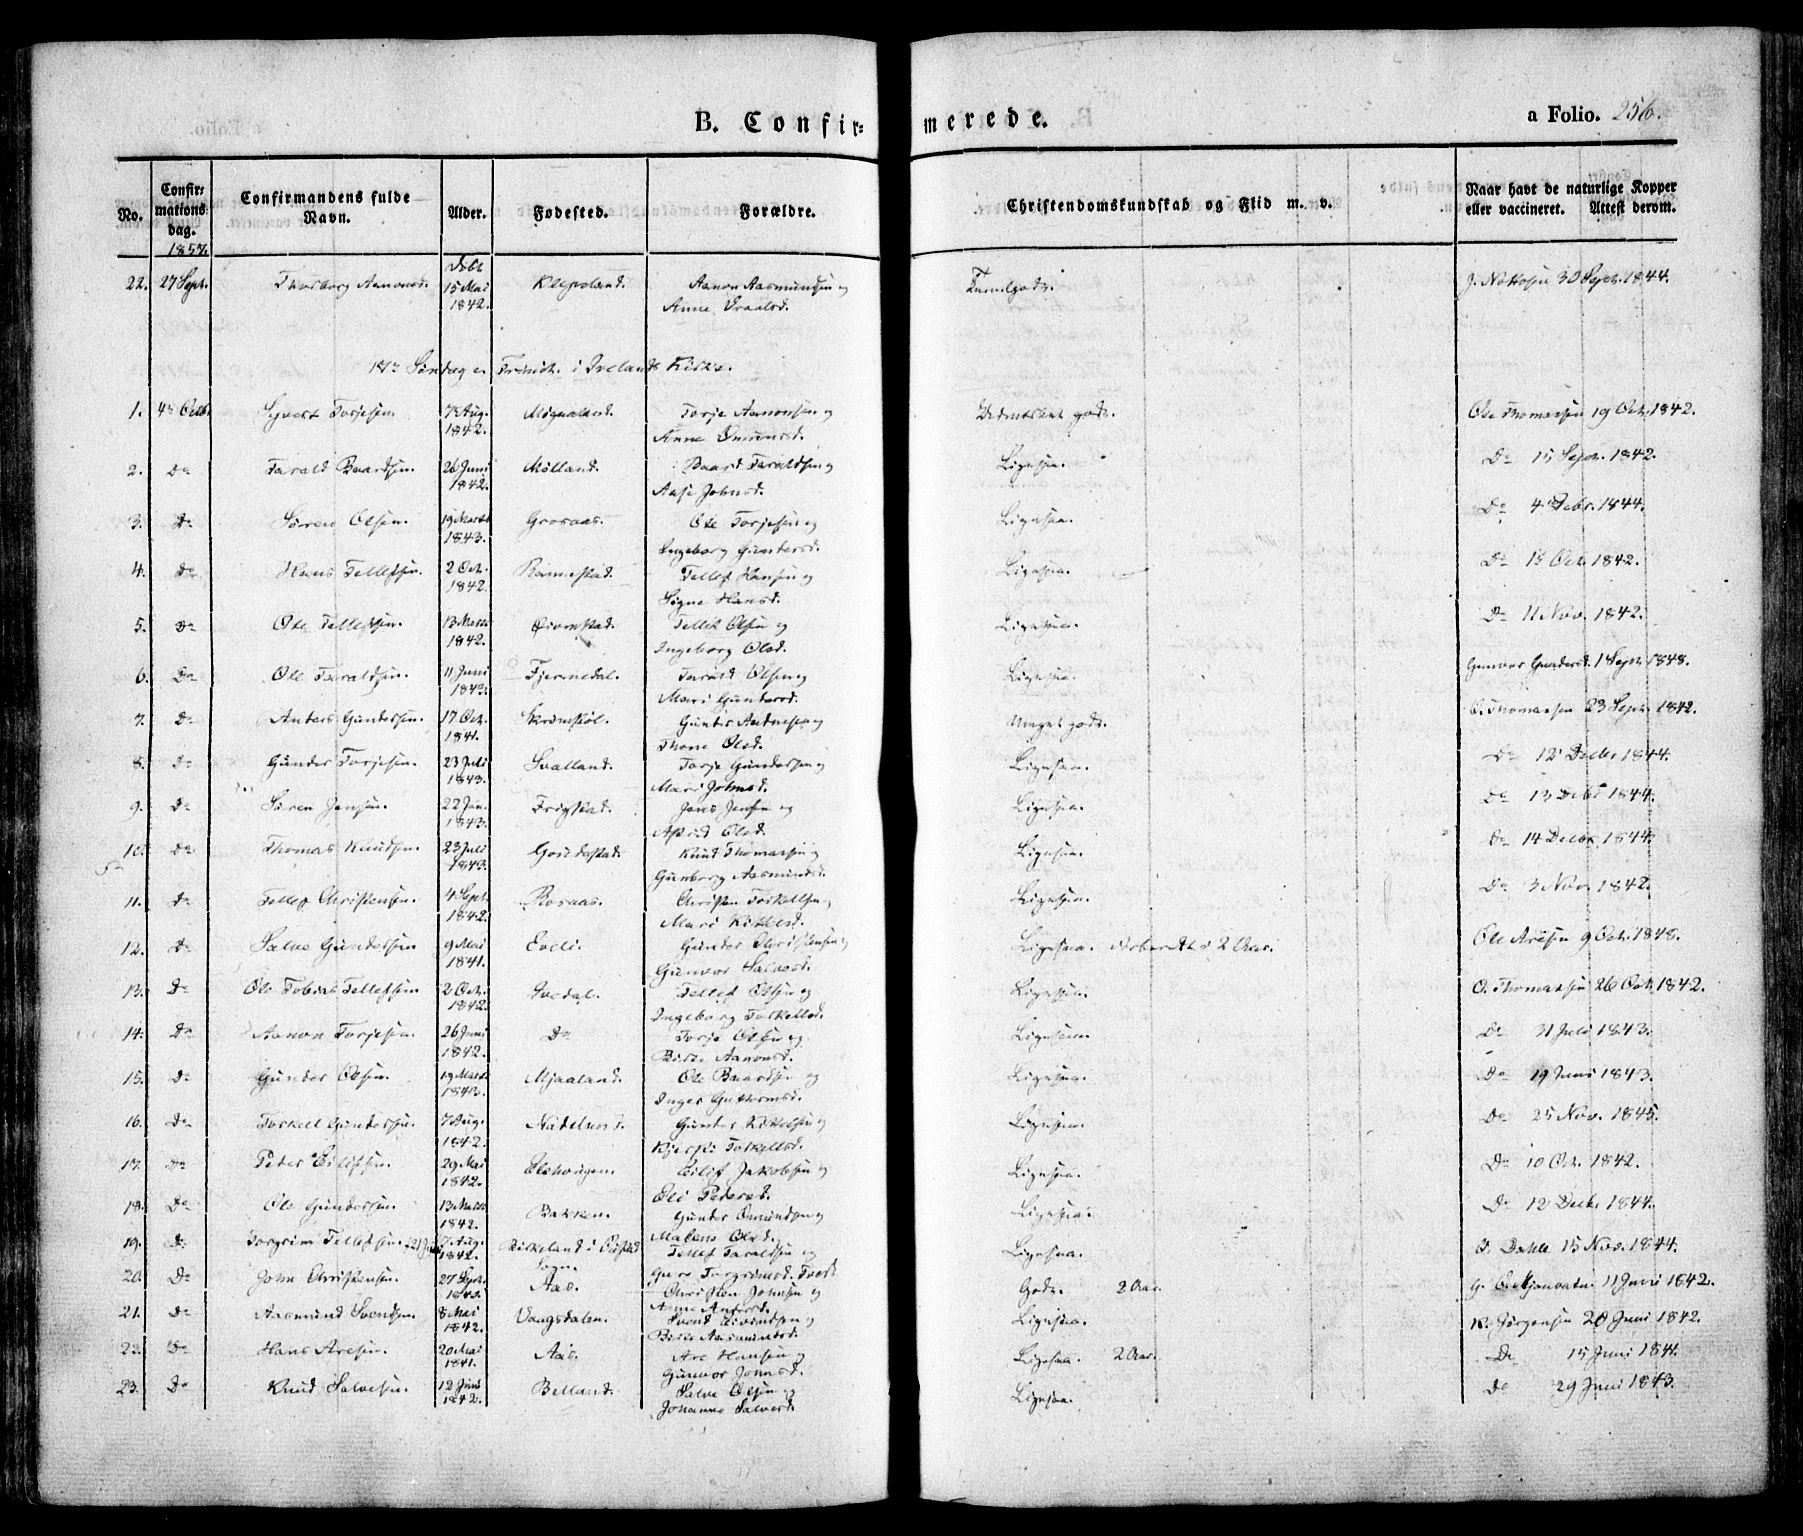 B. Confir= merede.
a Folio. 256.
No. Confir= mations dag. Confirmandens fulde Navn. Alder. Fødested. Forældre. Christendomskundskab og Flid m. v. Naar havt de naturlige Kopper eller vaccineret. Attest derom.
1857.
22. 27 Sept. Aanonsd. 15 Mai 1842. Klepsland. Aanon Aasmundsen og J. 30 Sept. 1844.
Anne
Søndag e. Trinit. i Ivelands Kirke.
1. 4de Octb. Syvert Torjesen 7 Aug. 1842. Torje Aanonsen og godt. Ole Thomassen 19 Oct. 1842.
Anne
2. Do Tarald Baardsen 26 Juni 1842. Mølland. Baard Taraldsen og Ligesaa. Do 15 Sept. 1842.
Aase Johnsd.
3. Do Søren Olsen. 19 Marts 1843. Grosaas. Ole Torjesen og Ligesaa. Do 4 Debr. 1844.
Ingeborg Gundersd.
4. Do Hans Tellefsen. 2 Oct. 1842. Tellef Hansen og Ligesaa. Do Oct. 1842.
Signe Hansd.
5. Do Ole Tellefsen. 13 Marts 1842. Tellef Olsen og Ligesaa. Do 11 Nov. 1842.
Ingeborg Olsd.
6. Do Ole Taraldsen. 11 Juni Fjermedal. Tarald Olsen og Ligesaa. Gunvor Gundersd. 1 Sept. 1848.
Mari Gundersd.
7. Do Anders Gundersen. 17 Oct. 1841. Gunder Andersen og Meget godt. O. Thomassen 23 Sept. 1842.
Thone Olsd.
8. Do Gunder Torjesen. 23 Juli 1843. Torje Gundersen og Ligesaa. Do 12 Decbr 1844.
Mari Johnsd.
9. Do Søren Jensen. 22 Jan. 1843. Frigstad. Jens Jensen og Ligesaa. Do 13 Debr 1844.
Olsd.
10. Do Thomas Knudsen. 23 Juli 1843. Knud Thomassen og Ligesaa. Do 14 Decbr 1844.
Gunborg Aasmundsd.
11. Do Tellef Christensen. 4 Sept. 1842. Rosaas. Christen Torkelsen og Ligesaa. Do 3 Nov. 1842.
Mari Kittelsd.
12. Do Salve Gundersen 9 Mai 1841. Gunder Christensen og Ligesaa. 2 Aar. Ole Aresen 9 Oct. 1848.
Gunvor Salvesd.
13. Do Ole Tobias Tellefsen 2 Oct. 1842. Ivedal. Tellef Olsen og Ligesaa. O. Thomassen 26 Oct. 1842.
Ingeborg Torkelsd.
14. Do Aanon Torjesen. 26 Juni 1842. Do Torje Olsen og Ligesaa. Do 31 Juli 1843.
Birte Aanonsd.
15. Do Gunder Olsen. 19 Marts 1843. Mjaaland. Ole Baardsen og Ligesaa. Do 19 Juni 1843.
Inger Guttormsd.
16. Do Torkell Gundersen. 7 Aug. 1842. Gunder Kittelsen og Ligesaa. Do 25 Nov. 1845.
Torkelsd.
17. Do Peder Eilifsen. 29 Mai 1842. Eilif Jakobsen og Ligesaa. Do 10 Oct. 1842.
Pedersd.
18. Do Ole Gundersen. 13 Marts 1842. Bakken. Gunder Omundsen og Ligesaa. Do 12 Decbr 1844.
Malene Olsd.
19. Do Torgrim Tellefsen 7 Aug. 1842. Birkeland i Sogn. Tellef Taraldsen og Ligesaa. O. Dahle 15 Nov. 1844.
Torgrimsd.
20. Do John Christensen. 27 Sept. Aas. Christen Johnsen og Godt. 2 Aar. 11 Juni 1842.
Anne
21. Do Aasmund Svendsen 8 Mai 1842. Vaagsdalen. Svend Eivindsen og Ligesaa. K. Jørgensen 28 Juni 1842.
Birte Aasmundsd.
22. Do Hans Aresen. 20 Mai 1841. Aas. Are Hansen og Ligesaa. 2 Aar. Do 15 Juni 1841.
Gunvor Johnsd.
23. Do Knud Salvesen. 12 Juni 1842. Belland. Salve Olsen og Ligesaa. Do 29 Juni 1843.
Johanne Salvesd.